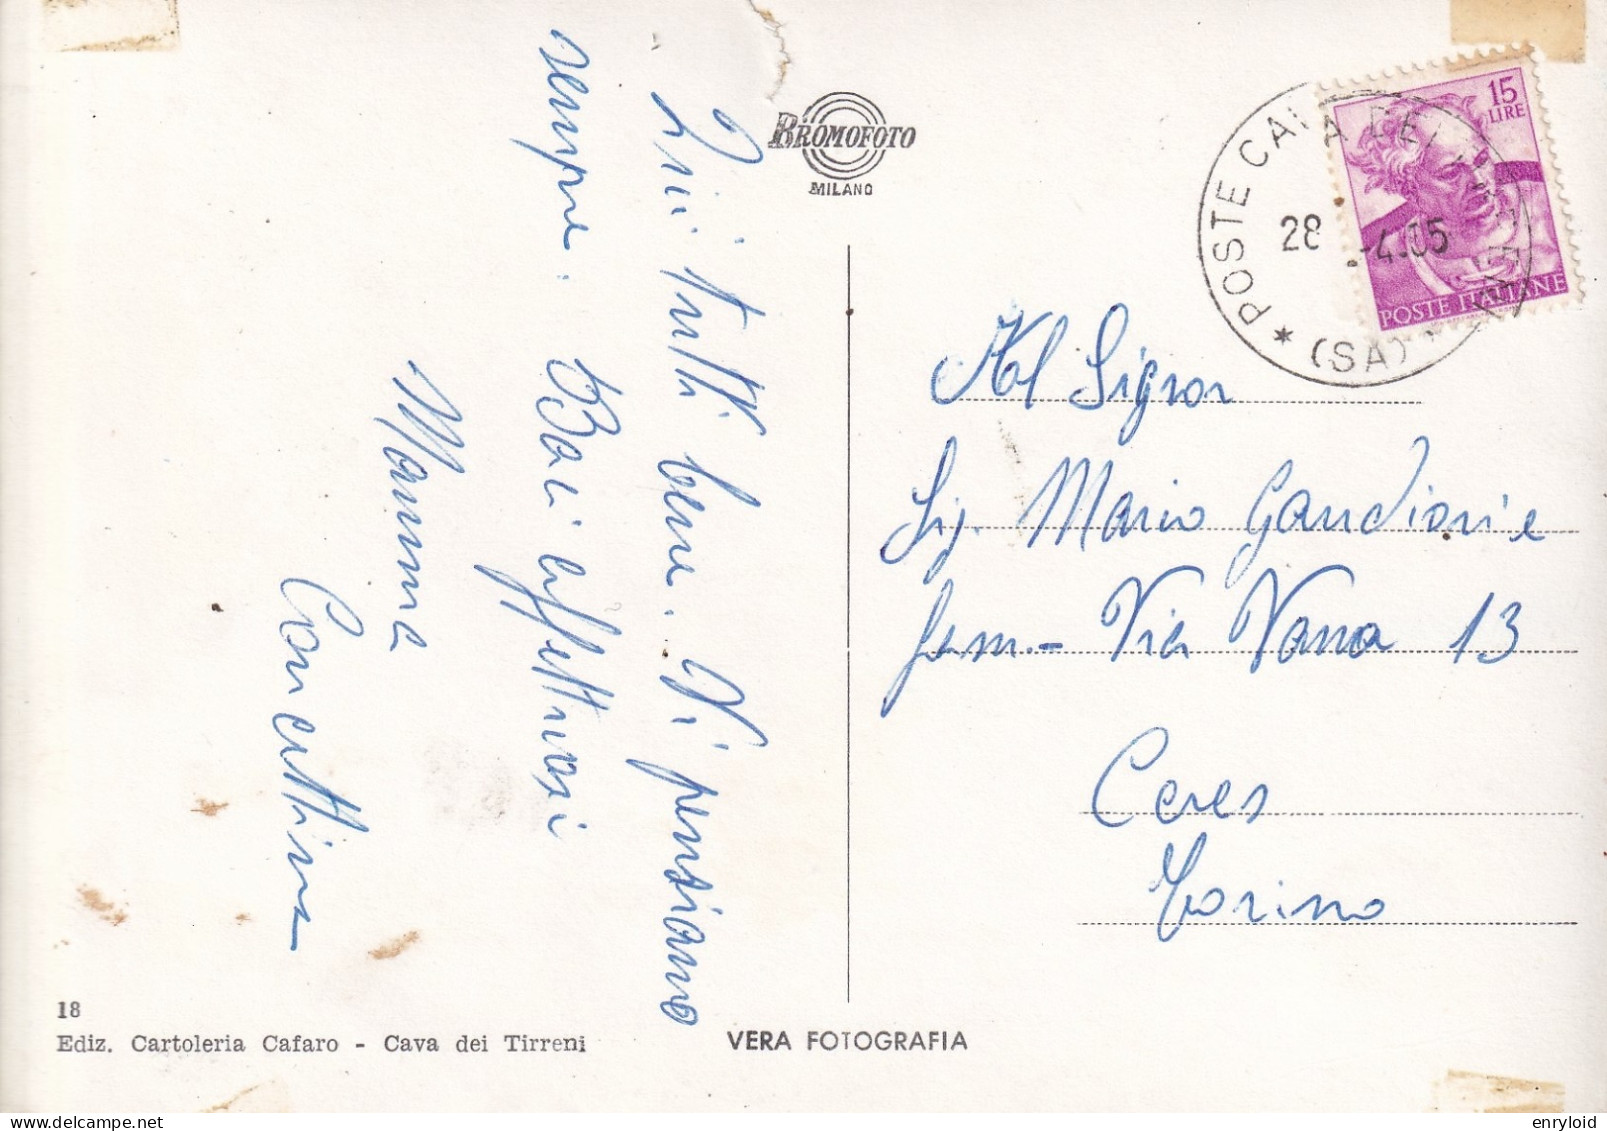 Qui tutti bene. Vi pensiamo
sempre. Baci affettuosi
Mamma
Concettina
BROMOFOTO
MILANO
15
LIRE
POSTE ITALIANE
* POSTE CAVA DEI TIRRENI * (SA)
28 -4.65
Al Signor
Sig. Mario Gaudiosi e
fam. - Via Vana 13
Ceres
Torino
18
Ediz. Cartoleria Cafaro - Cava dei Tirreni
VERA FOTOGRAFIA
enryloid